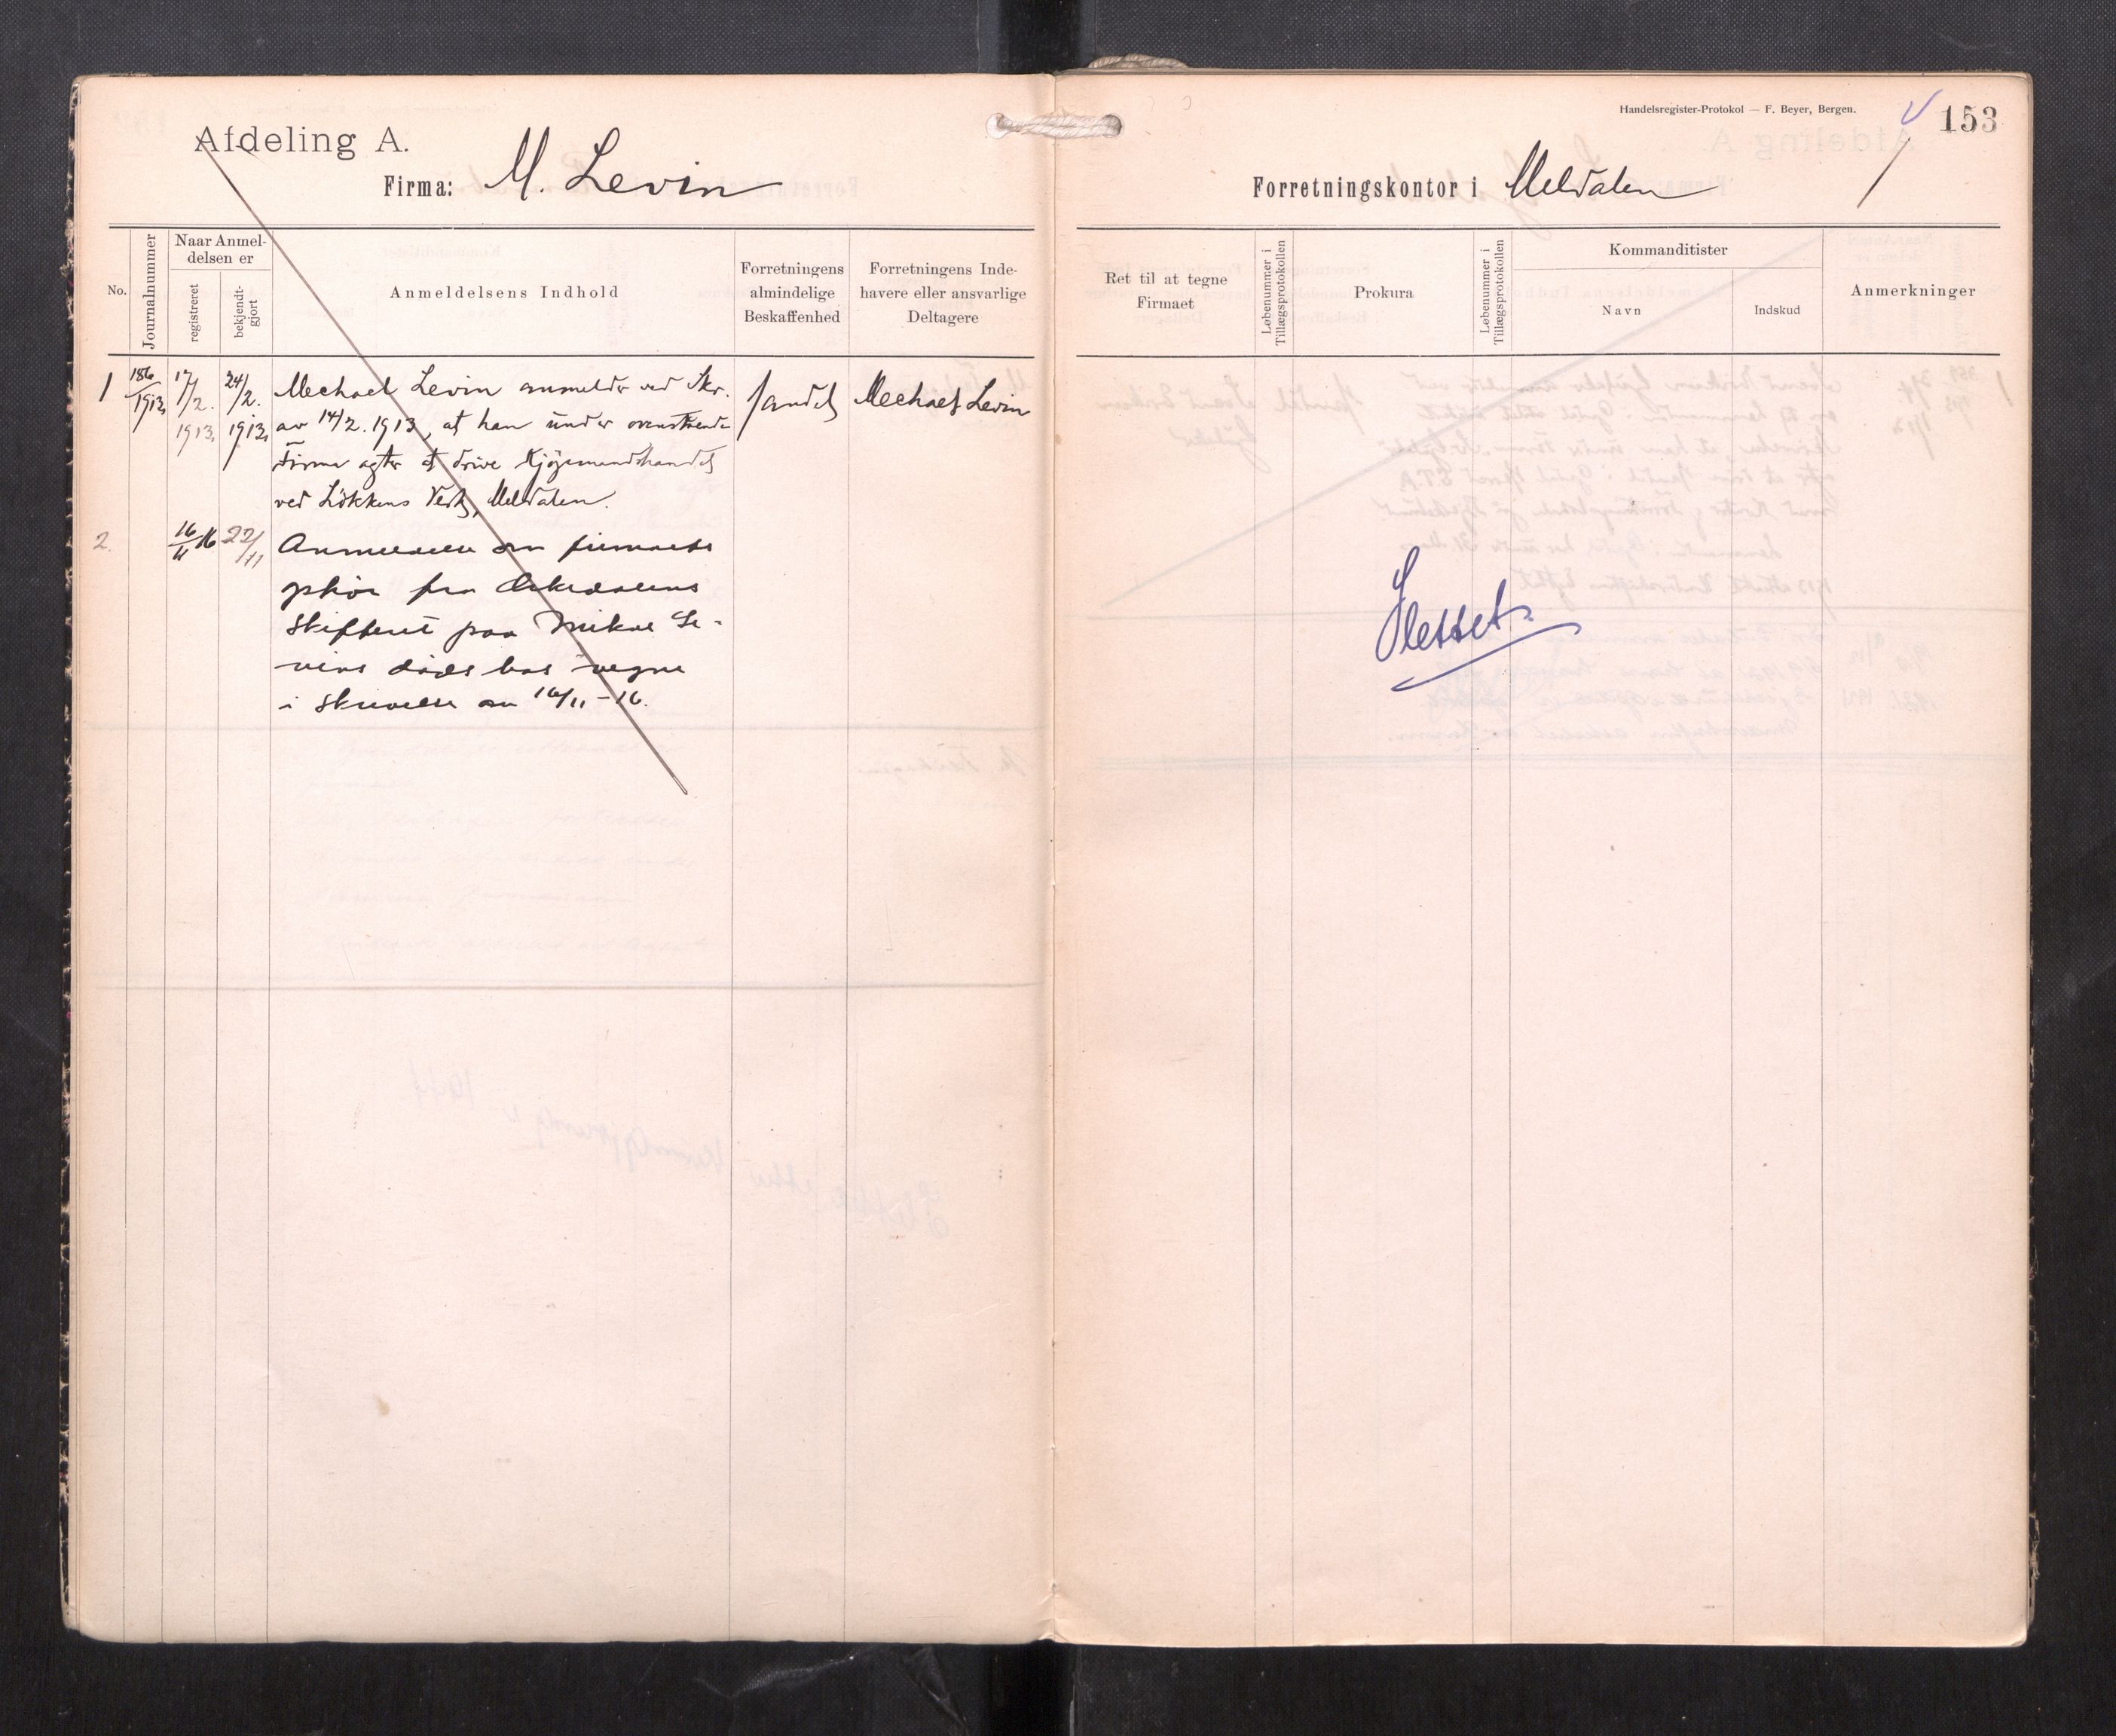 Afdeling A.
Firma: M. Levin
No.
Journalnummer
Naar Anmel-
delsen er
registreret
bekjendt-
gjort
Anmeldelsens Indhold
Forretningens
almindelige
Beskaffenhed
Forretningens Inde-
havere eller ansvarlige
Deltagere
1
186/1913
17/2. 1913
24/2. 1913.
Mechael Levin anmelder ved Skr.
av 14/2. 1913, at han under ovenstaaende
Firma agter at drive Kjøpmandshandel
ved Løkkens Verk, Meldalen.
Handel
Mechael Levin
2.
16/11 16
22/11
Anmeldelse om firmaets
ophør fra Orkedalens
skifteret paa Mikael Le-
vins dødsbos vegne
i skrivelse av 16/11 - 16.
Handelsregister-Protokol — F. Beyer, Bergen.
153
Forretningskontor i Meldalen
Ret til at tegne
Firmaet
Løbenummer i
Tillægsprotokollen
Prokura
Løbenummer i
Tillægsprotokollen
Kommanditister
Navn
Indskud
Anmerkninger
Slettet